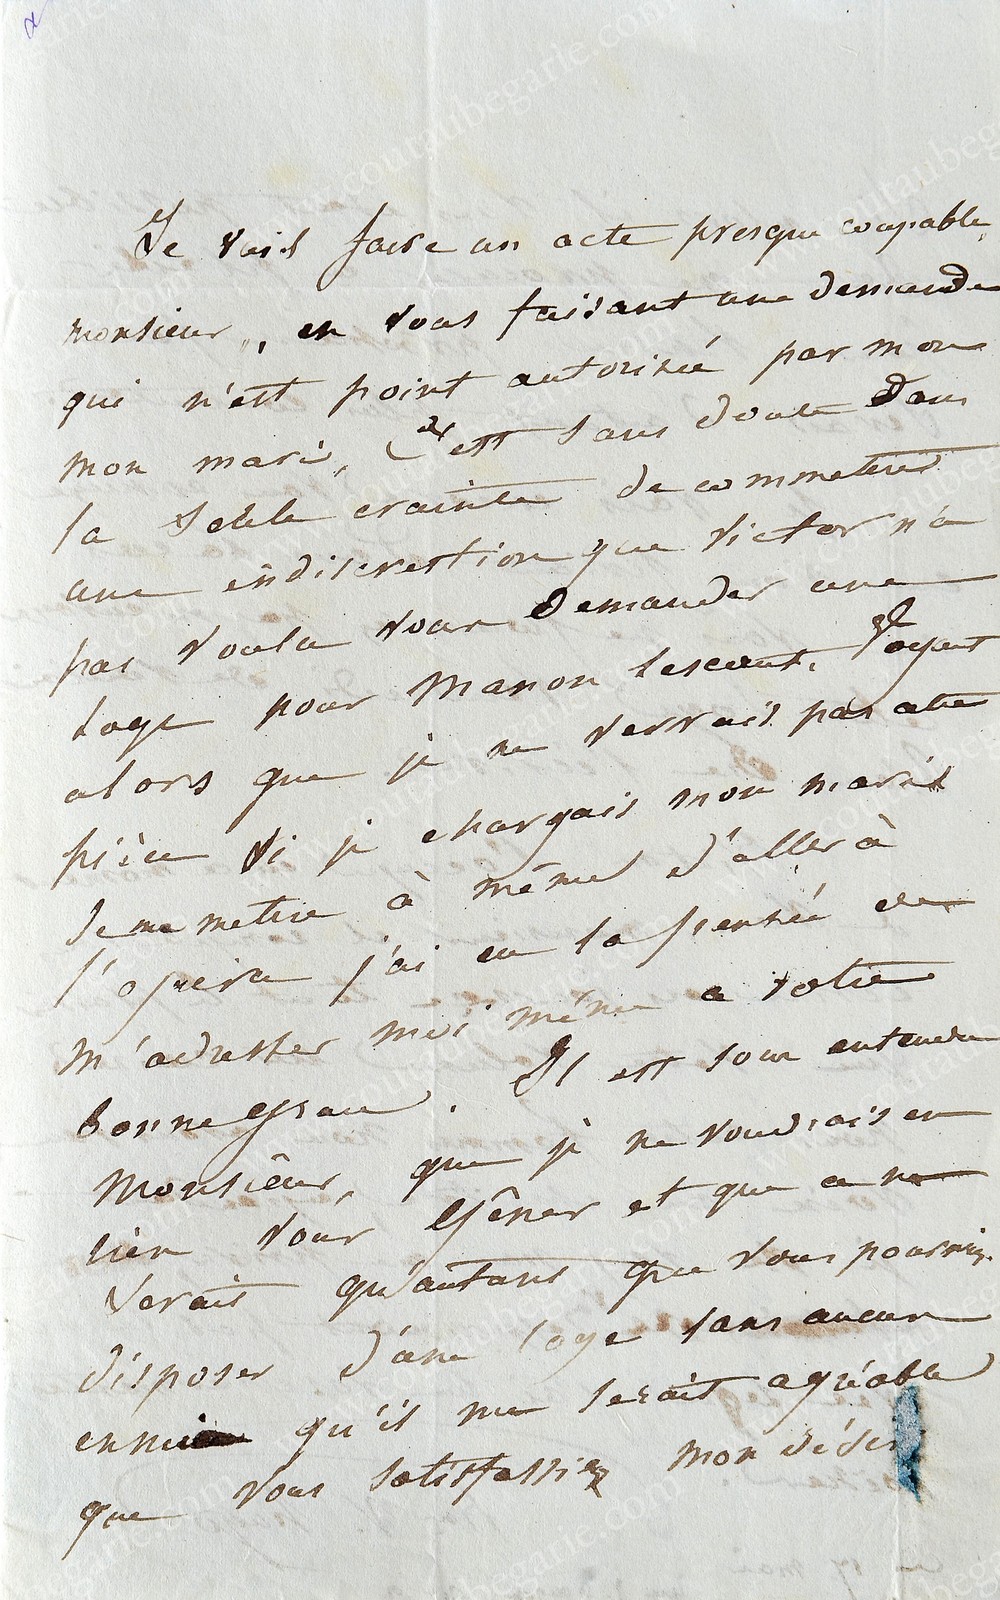 Je vais faire un acte presque coupable,
monsieur, en vous faisant une demande
qui n'est point autorisée par mon
mon mari, c'est sans doute dans
la seule crainte de commettre
une indiscrettion que Victor n'a
pas voulu vous demander une
loge pour Manon Lescaut. Voyant
alors que je ne verrais pas cette
pièce si je chargais mon mari
de me mettre à même d'aller à
l'opéra j'ai eu la pensée de
m'adresser moi même a votre
bonne grace. Il est sous entendu
Monsieur, que je ne voudrais en
rien vous gêner et que ce ne
serait qu'autant que vous pourriez
disposer d'une loge sans aucun
ennui qu'il me serait agréable
que vous satisfassiez mon désir
www.coutaubegarie.com